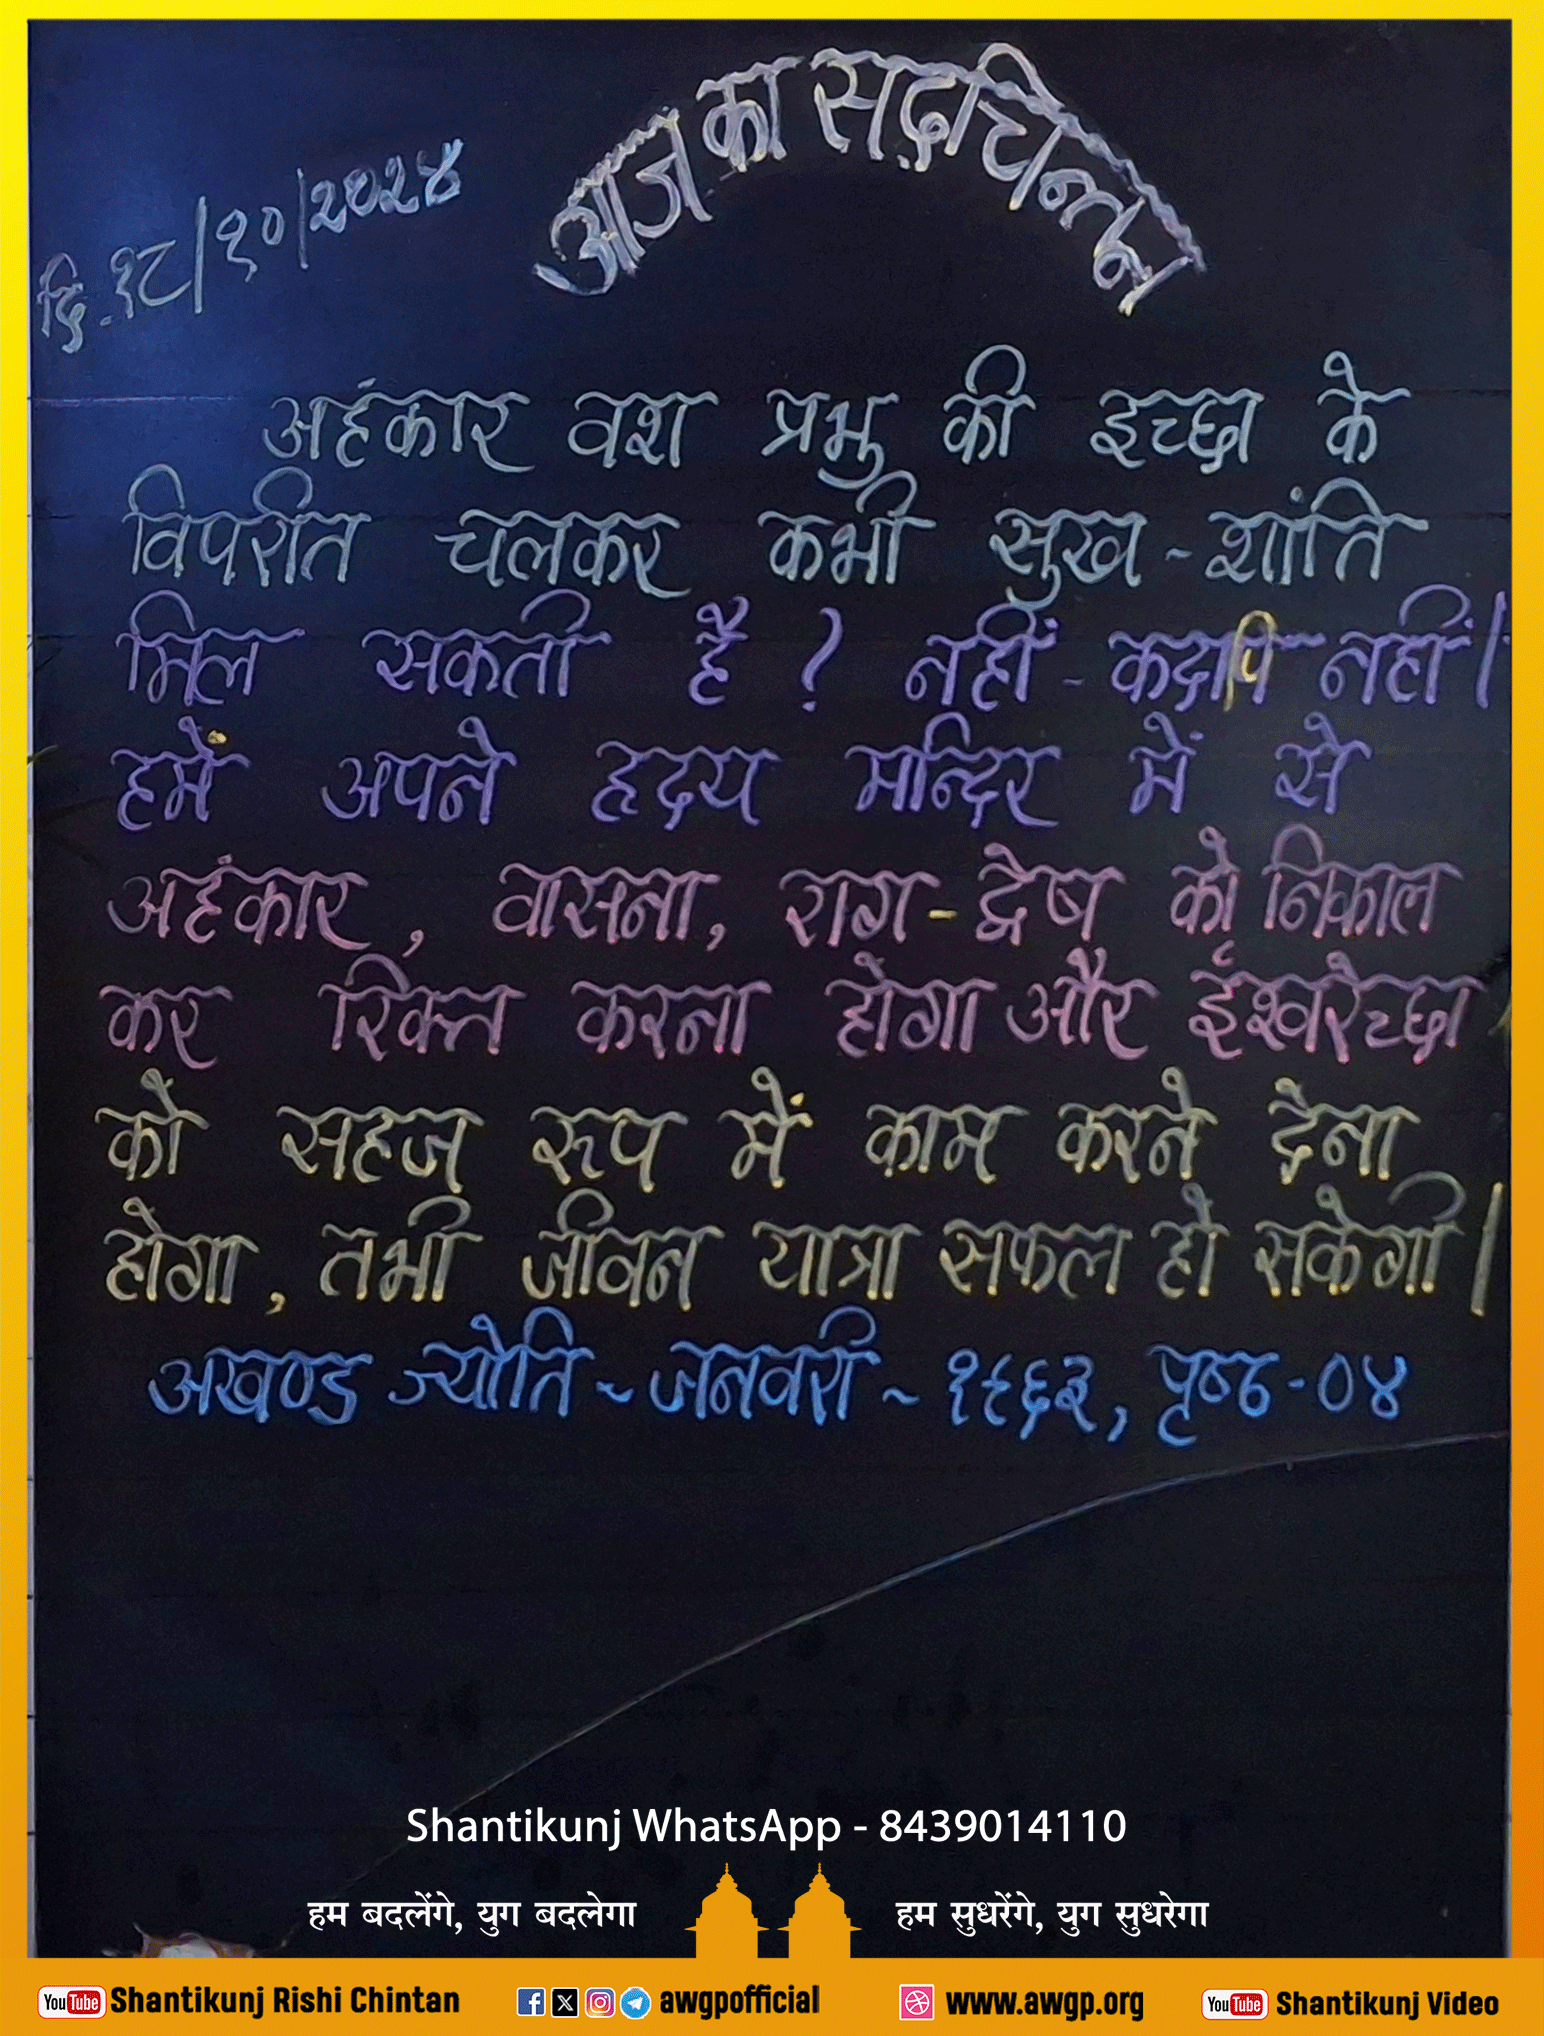 आज का सद्चिन्तन
दि. १८/१०/२०२४
अहंकार वश प्रभु की इच्छा के
विपरीत चलकर कभी सुख - शांति
मिल सकती है ? नहीं - कदापि नहीं।
हमें अपने हृदय मन्दिर में से
अहंकार, वासना, राग-द्वेष को निकाल
कर रिक्त करना होगा और ईश्वरेच्छा
को सहज रूप में काम करने देना
होगा, तभी जीवन यात्रा सफल हो सकेगी।
अखण्ड ज्योति - जनवरी - १९६३, पृष्ठ - ०४
Shantikunj WhatsApp - 8439014110
हम बदलेंगे, युग बदलेगा हम सुधरेंगे, युग सुधरेगा
YouTube Shantikunj Rishi Chintan awgpofficial www.awgp.org YouTube Shantikunj Video